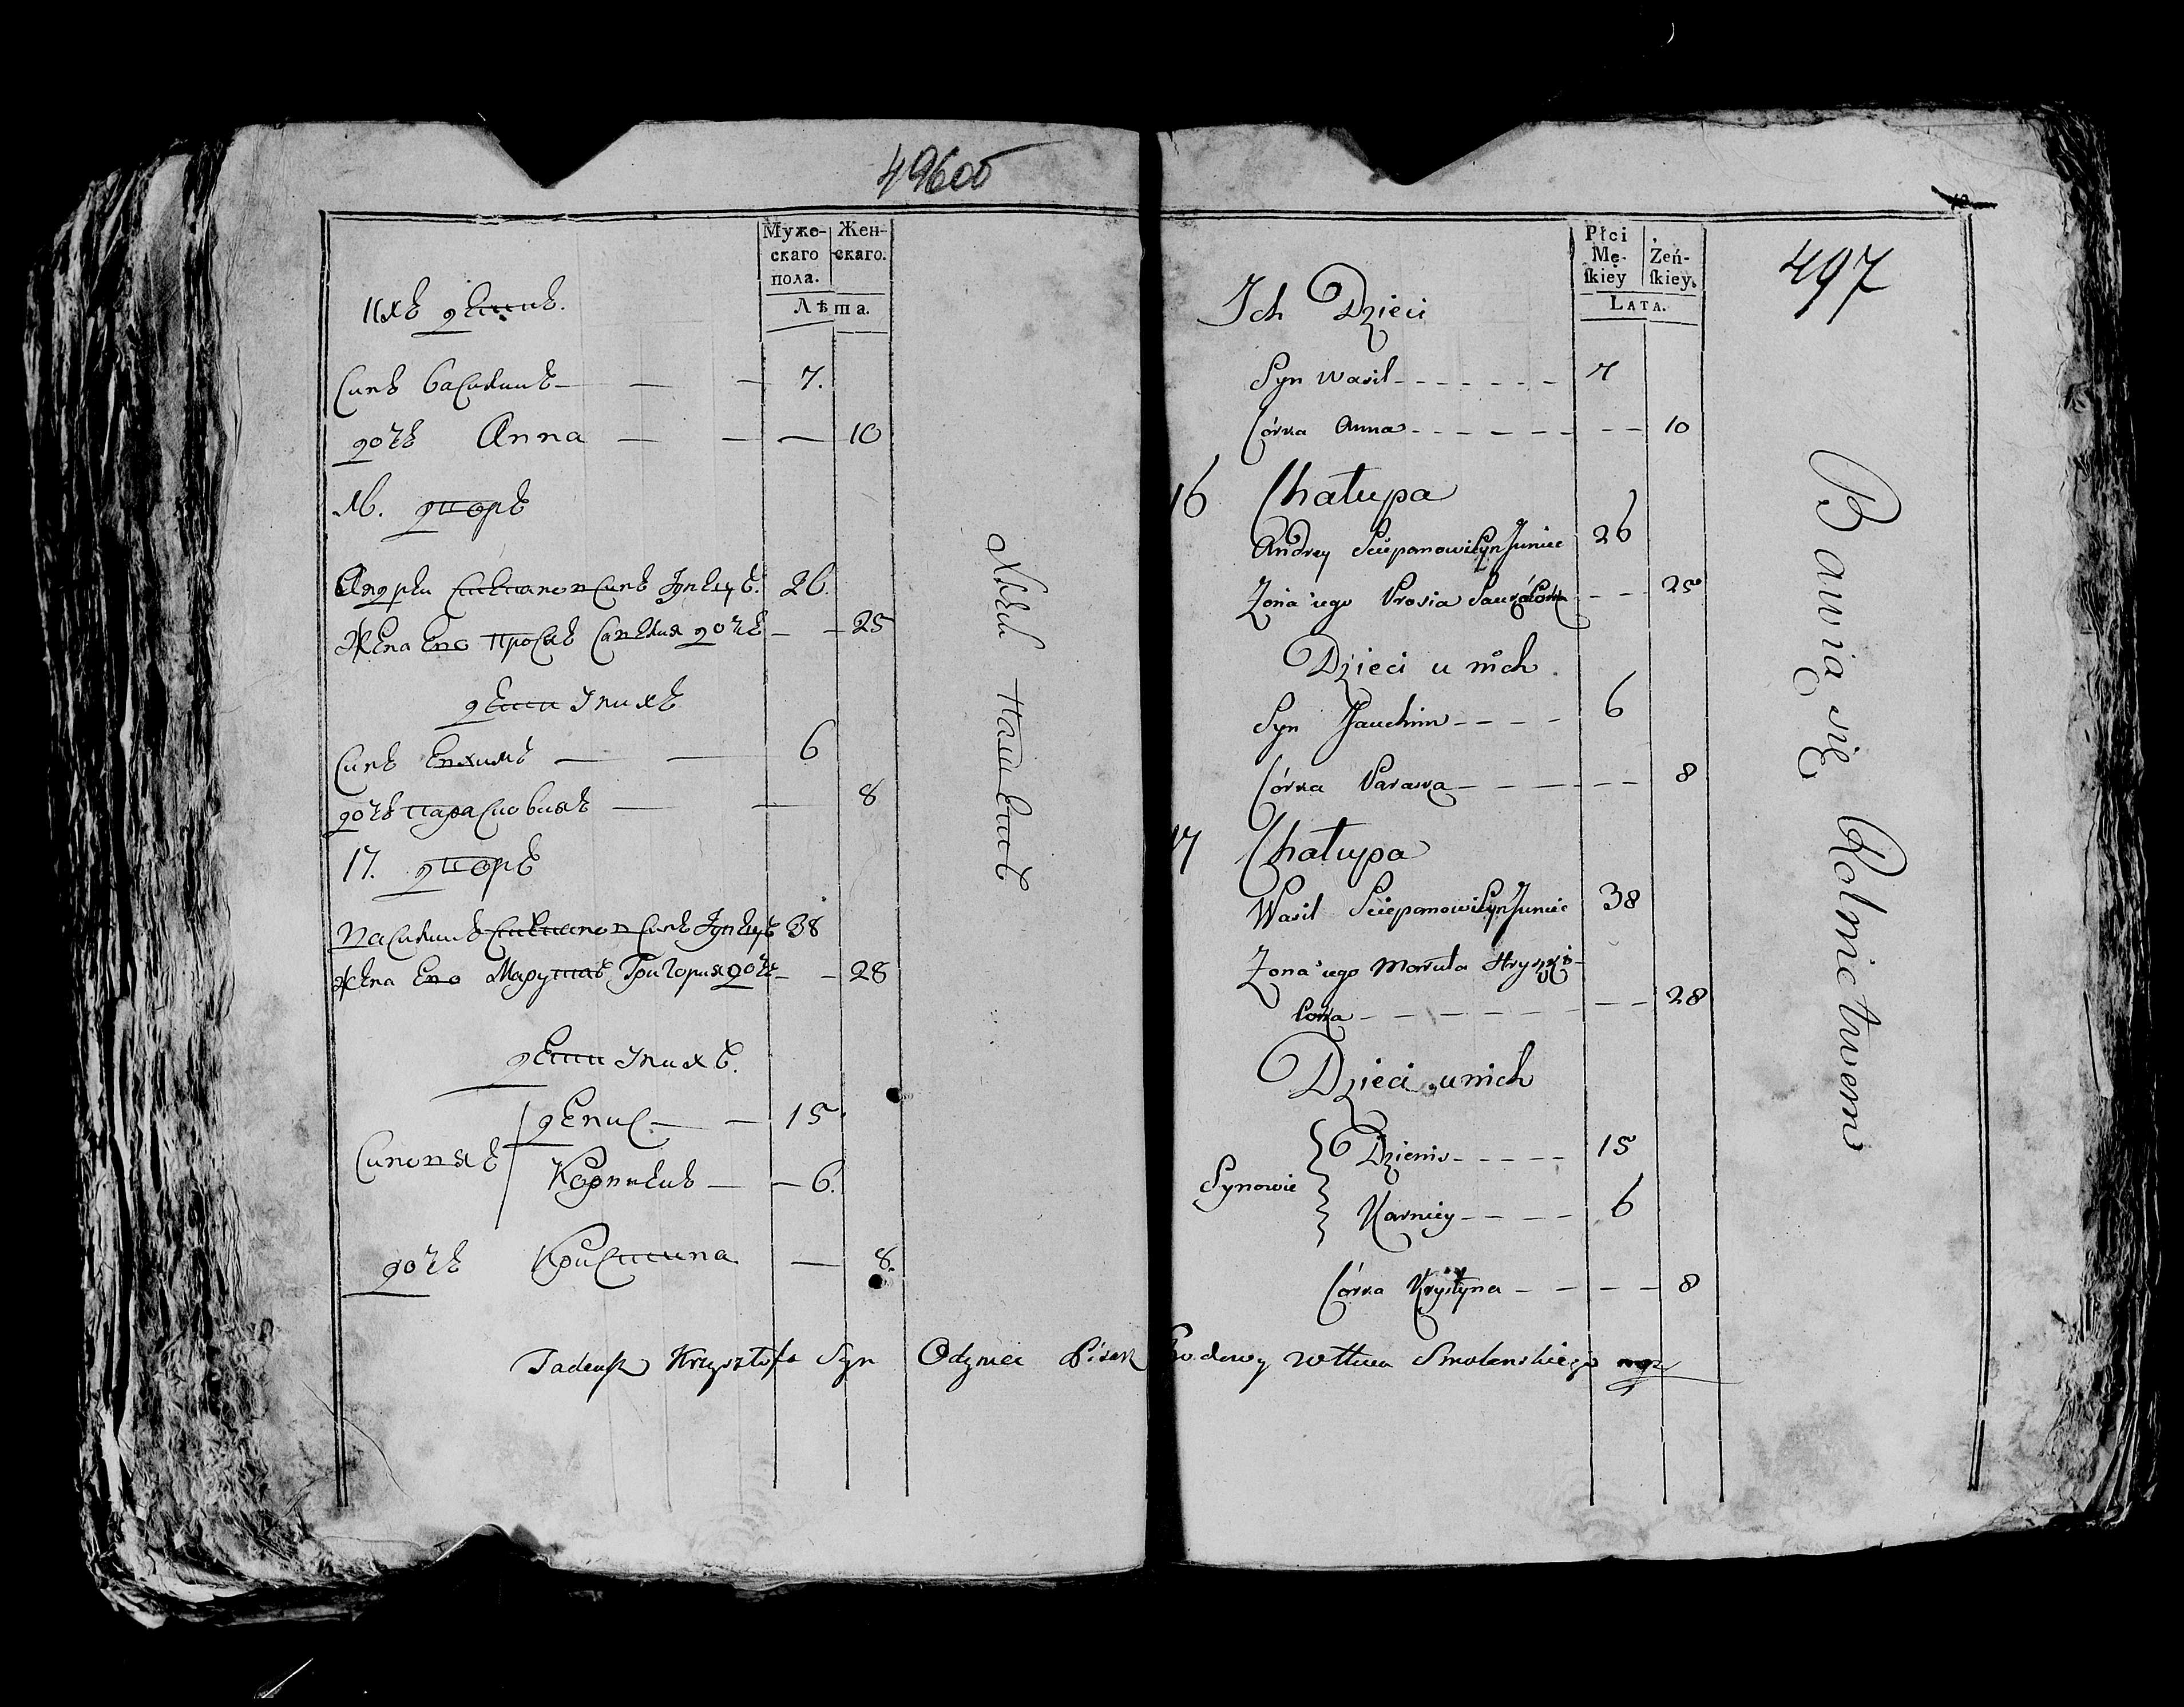 496об
Муже-
скаго
пола.
Жен-
скаго.
Лѣта.
Ихъ детиъ.
Синъ Василишъ — — — 7.
дочъ Anna — — — 10
16. дворъ
Андреи Степанов Синъ Iунецъ. 26.
Жена Ево Просяъ Савеля дочъ — — 25
дети Iнихъ
Синъ Евхимъ — — 6
дочъ Парасковияъ — — 8
17. дворъ
Василишъ Степанов Синъ Iунецъ 38
Жена Ево Марутаъ Григория дочъ — — 28
дети Iнихъ.
Синовяъ
денис — — 15.
Корниеиъ — — 6.
дочъ Кристина — 8.
497
Płci
Mę-
ſkiey
Żeń-
ſkiey.
LATA.
Ich Dzieci
Syn Wasil - - - - - - - 7
Córka Anna - - - - - - - - 10
16 Chałupa
Andrey Sciepanowi Syn Juniec 26
Zona iego Prosia - - 25
Dzieci u nich.
Syn Jauchim - - - - 6
Córka Paraska - - - - - - 8
17 Chałupa
Wasil Sciepanowi Syn Juniec 38
Zona iego Maruta
Corka - - - - - - - - 28
Dzieci u nich
Synowie
Dzienis - - - - - 15
Karniey - - - - 6
Córka Krystyna - - - - 8
Bawią się Rolnictwem
Tadeusz Krzysztofa Syn Odyniec Pisarz Grodowy Wttwa Smolenskiego mp